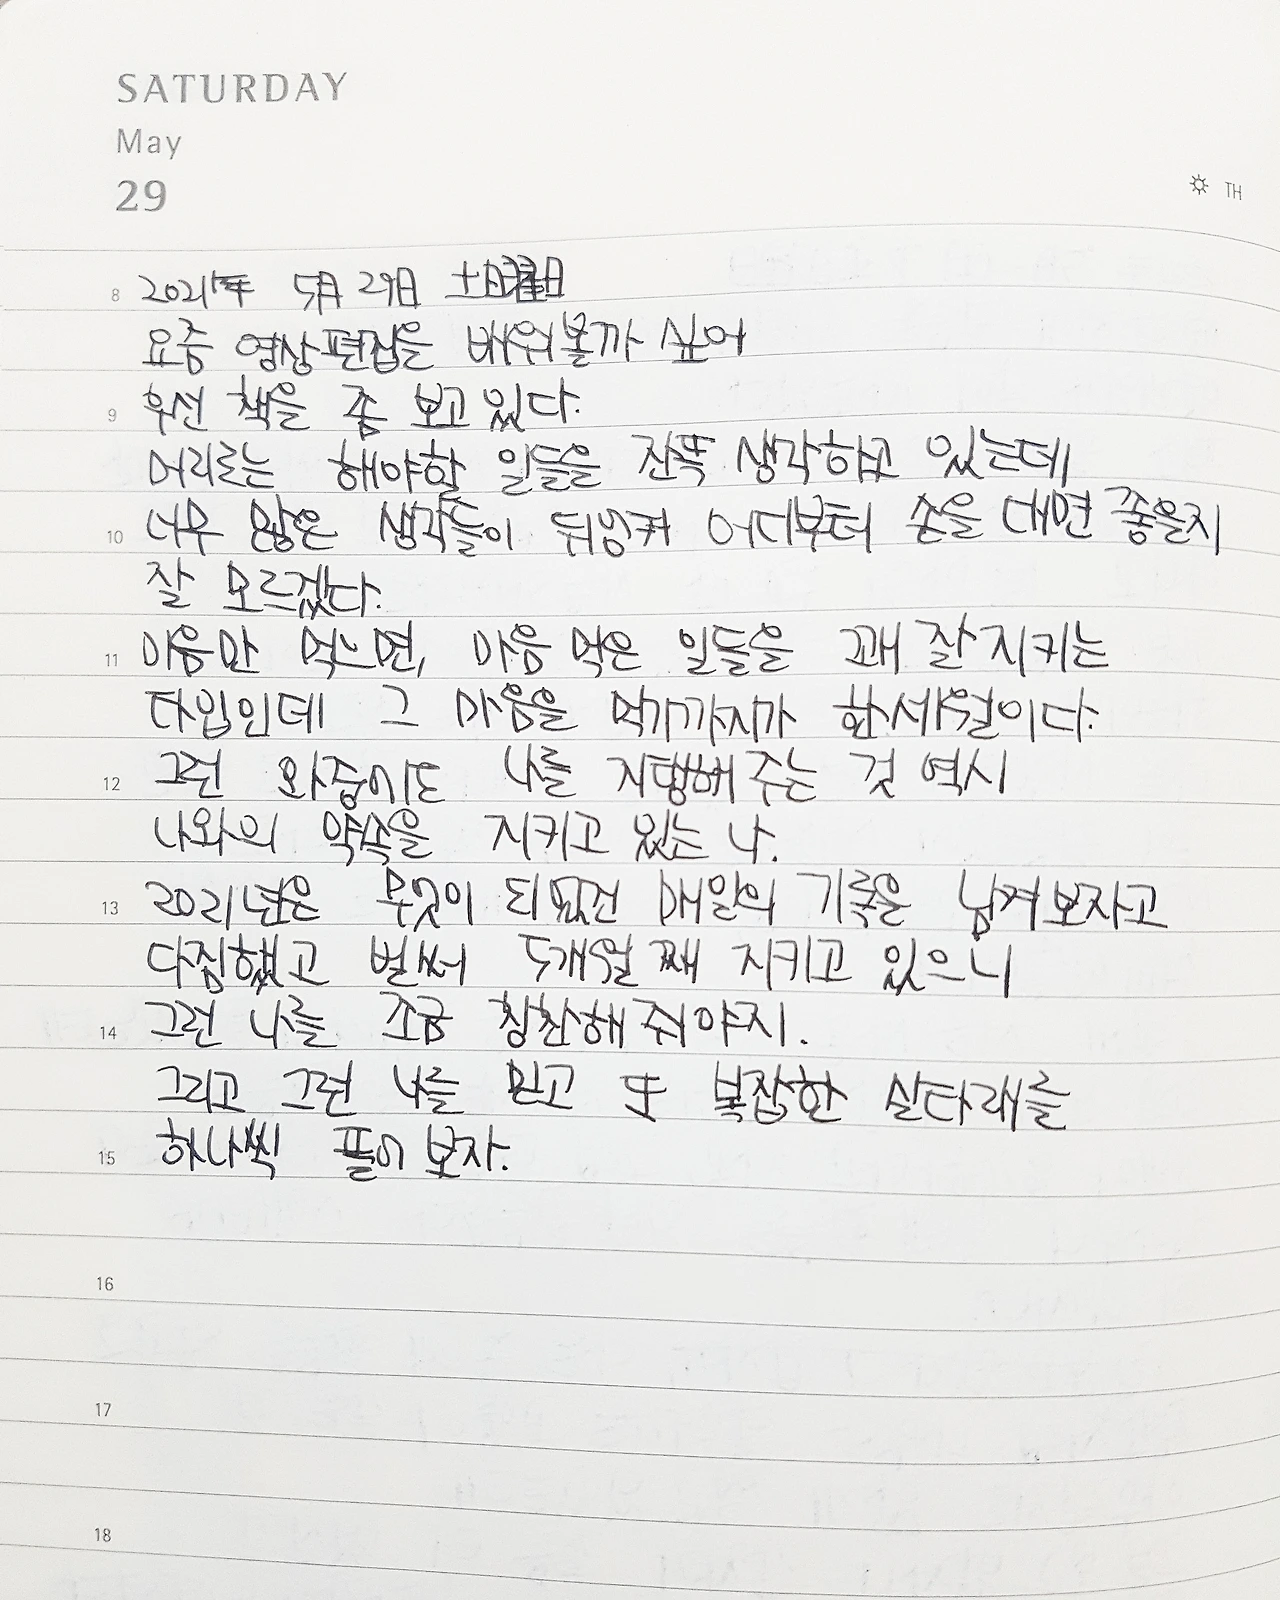 SATURDAY
May
29
TH
8 2021年 5月 29日 土曜日
요즘 영상편집을 배워볼까 싶어
9 우선 책을 좀 보고 있다.
머리로는 해야할 일들을 잔뜩 생각하고 있는데
10 너무 많은 생각들이 뒤엉켜 어디부터 손을 대면 좋을지
잘 모르겠다.
11 마음만 먹으면, 마음 먹은 일들을 꽤 잘 지키는
타입인데 그 마음을 먹기까지가 한세월이다.
12 그런 와중에도 나를 지탱해 주는 것 역시
나와의 약속을 지키고 있는 나.
13 2021년은 무엇이 되었건 매일의 기록을 남겨보자고
다짐했고 벌써 5개월 째 지키고 있으니
14 그런 나를 조금 칭찬해 줘야지.
그리고 그런 나를 믿고 또 복잡한 실타래를
15 하나씩 풀어 보자.
16
17
18